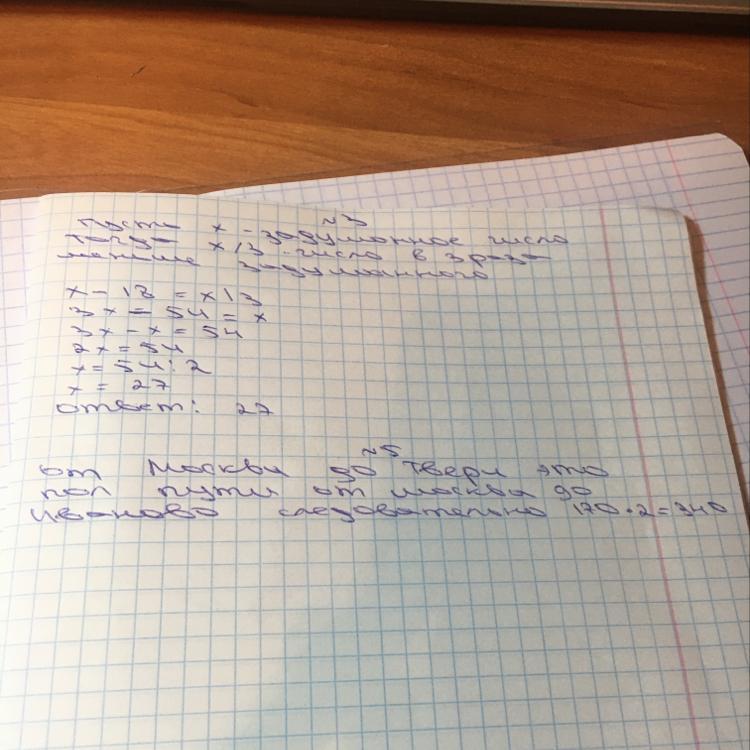 ~3
пусть x - задуманное число
тогда x/3 - число в 3 раза
меньше задуманного
x - 18 = x/3
3x - 54 = x
3x - x = 54
2x = 54
x = 54 : 2
x = 27
ответ: 27
~5
от Москвы до Твери это
пол пути от москвы до
иваново следовательно 170 · 2 = 340